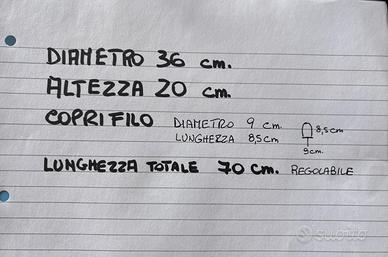 DIAMETRO 36 cm.
ALTEZZA 20 cm.
COPRIFILO DIAMETRO 9 cm.
LUNGHEZZA 8,5cm
8,5cm
9cm.
LUNGHEZZA TOTALE 70 cm. REGOLABILE
subito